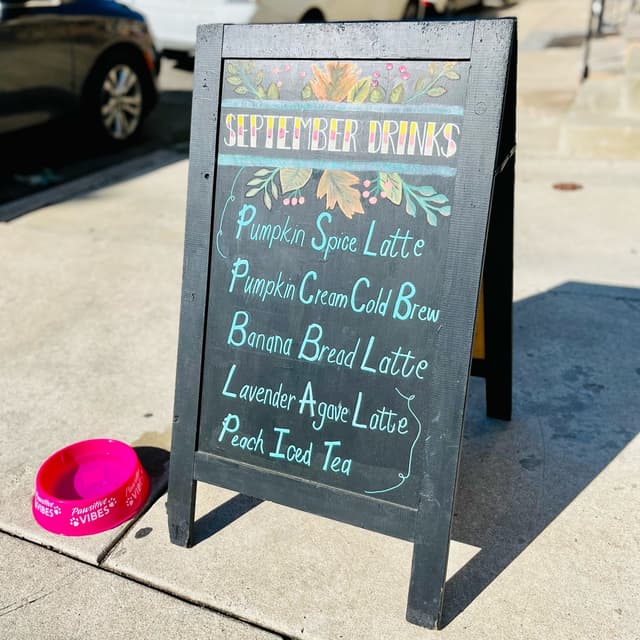 SEPTEMBER DRINKS
Pumpkin Spice Latte
Pumpkin Cream Cold Brew
Banana Bread Latte
Lavender Agave Latte
Peach Iced Tea
Pawsitive
VIBES
VIBES
VIBES